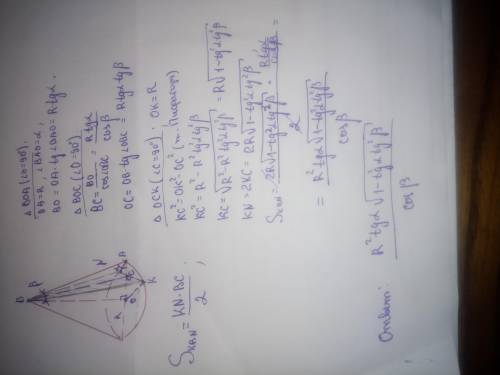 △BOA (∠O=90°).
OA=R, ∠BAO=α,
BO=OA·tg∠BAO=Rtgα.
△BOC (∠O=90°)
BC= BO/cos∠OBC = Rtgα/cosβ
OC=OB·tg∠OBC=Rtgα tgβ
△OCK (∠C=90°): OK=R
KC²=OK²-OC² (т. Пифагора)
KC²=R²-R²tg²αtg²β
KC=√(R²-R²tg²αtg²β)=R√(1-tg²αtg²β)
KN=2KC=2R√(1-tg²αtg²β)
S_KBN= 2R√(1-tg²αtg²β) · Rtgα/cosβ / 2 =
= R²tgα√(1-tg²αtg²β) / cosβ
B
β
N
A
C
α
O
K
A
S_KBN= KN·BC / 2;
R²tgα√(1-tg²αtg²β) / cosβ